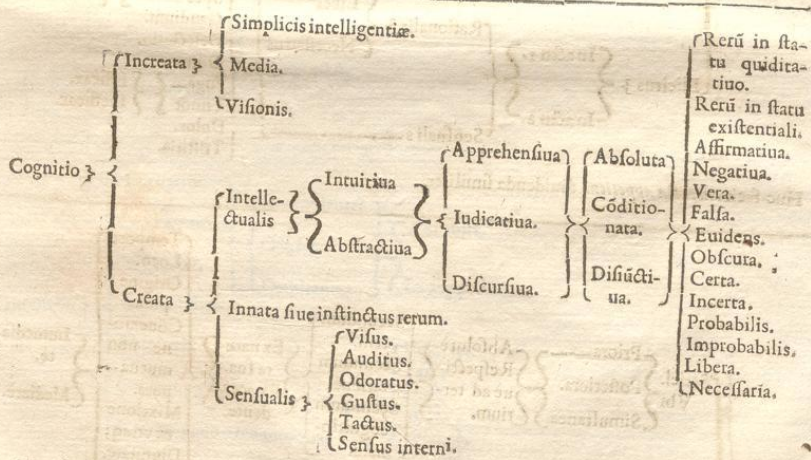 Cognitio
Increata
Simplicis intelligentiæ.
Media.
Visionis.
Creata
Intelle-
ctualis
Intuitiua
Abstractiua
Apprehensiua
Iudicatiua.
Discursiua.
Absoluta
Cōditio-
nata.
Disiūcti-
ua.
Rerū in sta-
tu quidita-
tiuo.
Rerū in statu
existentiali.
Affirmatiua.
Negatiua.
Vera.
Falsa.
Euidens.
Obscura.
Certa.
Incerta.
Probabilis.
Improbabilis.
Libera.
Necessaria.
Innata siue instinctus rerum.
Sensualis
Visus.
Auditus.
Odoratus.
Gustus.
Tactus.
Sensus interni.